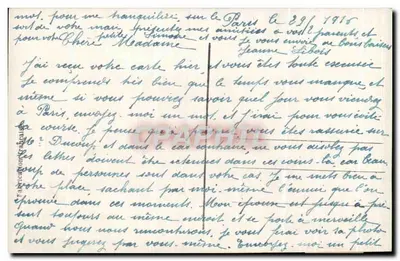 mot, pour me tranquiliser, sur le Paris le 29/ 1916
sort de votre mari, présentez mes amitiées à vos parents, et
pour votre petite Simone et vous je vous envoie de bons baisers
Chère Madame Jeanne
J'ai reçu votre carte hier, et vous êtes toute excusée
Je comprends très bien que le temps vous manque, et
même si vous pouvez savoir quel jour vous viendrez
à Paris, envoyez moi un mot, et j'irai pour vous éviter
la course. Je vous êtes rassurée sur
Mr et dans le cas contraire, ne vous désolez pas
les lettres doivent être retenues dans ces cas là, car beau
coup de personnes sont dans votre cas. Je me mets bien à
votre place, sachant par moi-même l'ennui que l'on
éprouve dans ces moments. Mon époux est jusqu'à pré-
sent toujours au même endroit et se porte à merveille
Quand nous nous rencontrerons, je vous ferai voir sa photo
et vous jugerez par vous-même. Envoyez-moi un petit